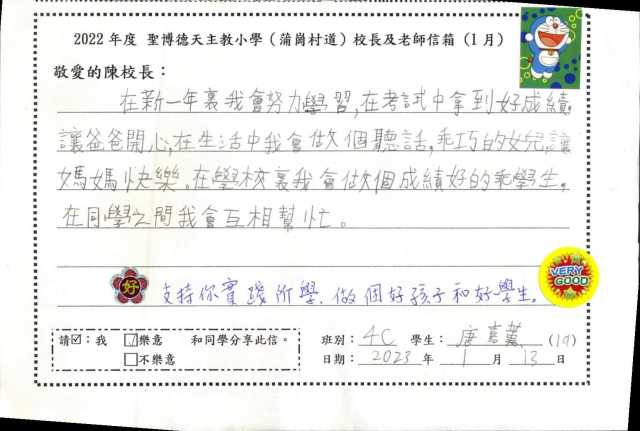 2022 年度 聖博德天主教小學（蒲崗村道）校長及老師信箱（1 月）
敬愛的陳校長：
在新一年裏我會努力學習,在考試中拿到好成績,
讓爸爸開心,在生活中我會做個聽話,乖巧的女兒,讓
媽媽快樂。在學校裏我會做個成績好的乖學生。
在同學之間我會互相幫忙。
好 支持你實踐所學,做個好孩子和好學生。
VERY GOOD
請☑：我 ☑樂意 和同學分享此信。 班別：4C 學生：唐嘉 (19)
□不樂意 日期：2023 年 1 月 13 日